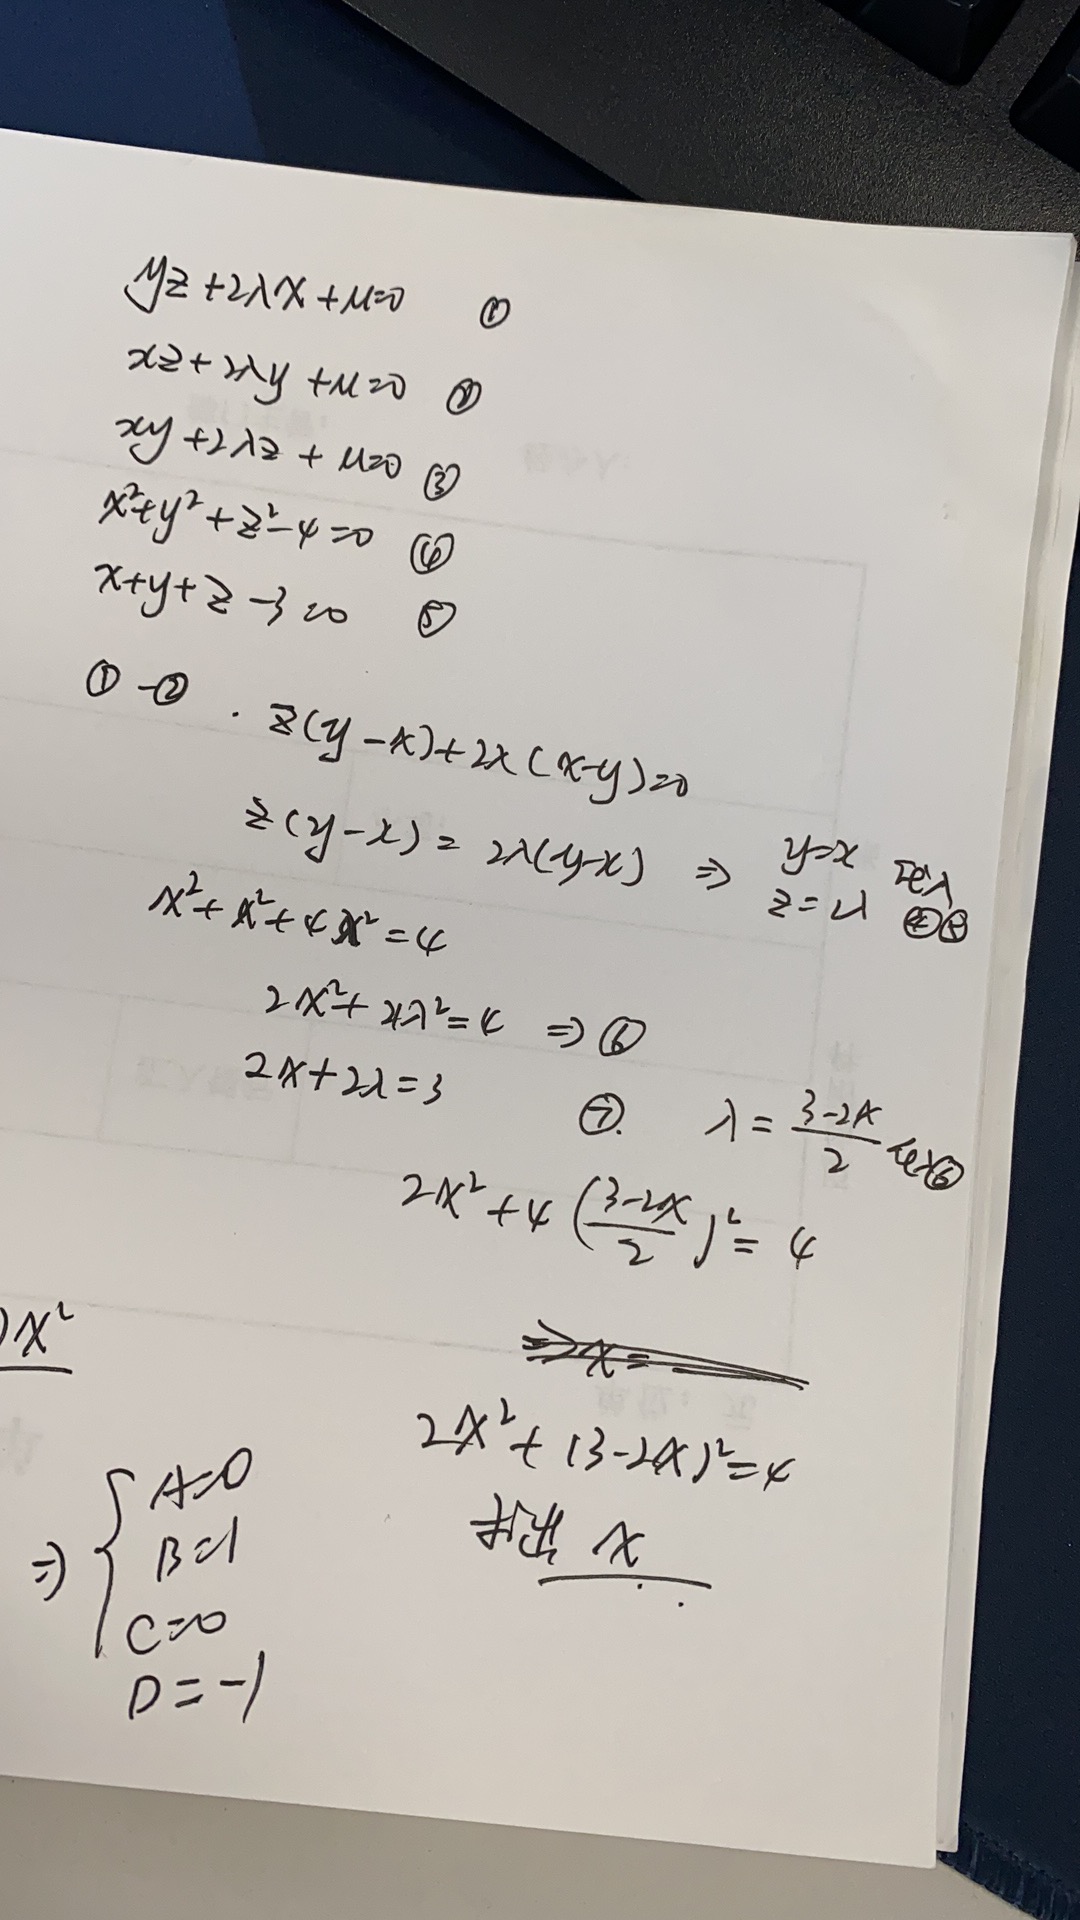 yz+2λx+μ=0 ①
xz+2λy+μ=0 ②
xy+2λz+μ=0 ③
x²+y²+z²-4=0 ④
x+y+z-3=0 ⑤
①-②. z(y-x)+2λ(x-y)=0
z(y-x)=2λ(y-x) ⇒ y=x
z=2λ ④⑤
x²+x²+4λ²=4
2x²+4λ²=4 ⇒⑥
2x+2λ=3 ⑦. λ=(3-2x)/2 代入⑥
2x²+4((3-2x)/2)²=4
)x²
2x²+(3-2x)²=4
求出 x
⇒ { A=0
B=1
C=0
D=-1